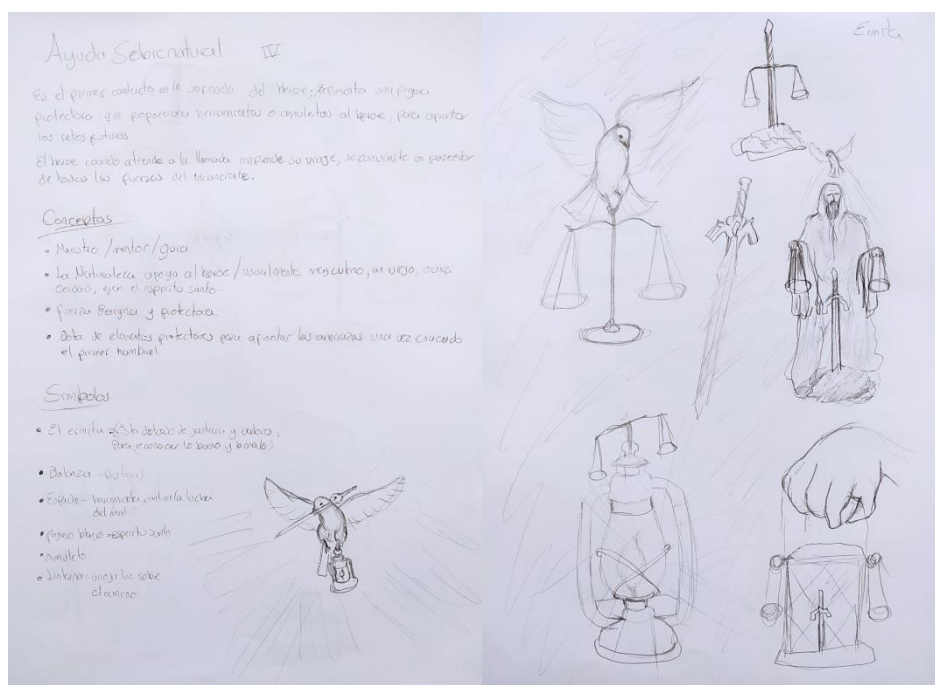 Ayuda Sobrenatural IV
Ermita
Es el primer contacto en la Jornada del Heroe, representa una figura
protectora que proporciona herramientas o amuletos al heroe, para afrontar
los retos futuros.
El heroe cuando atiende a la llamada su viaje, se convierte en poseedor
de todas las fuerzas del
Conceptos
• Maestro / mentor / guia
• La Naturaleza apoya al heroe / usualmente masculino, un viejo, o una
el espiritu santo.
• fuerza Benigna y protectora
• Dota de elementos protectores para afrontar las amenazas una vez cruzado
el primer humbral.
Simbolos
• El ermita = (Esta dotado de justicia y valores,
para reconocer lo bueno y lo malo)
• Balanza -
• Espada - herramienta contra la lucha
del mal
• pajaro blanco = espiritu santo
• Amuleto
• Linterna: arroja luz sobre
el camino